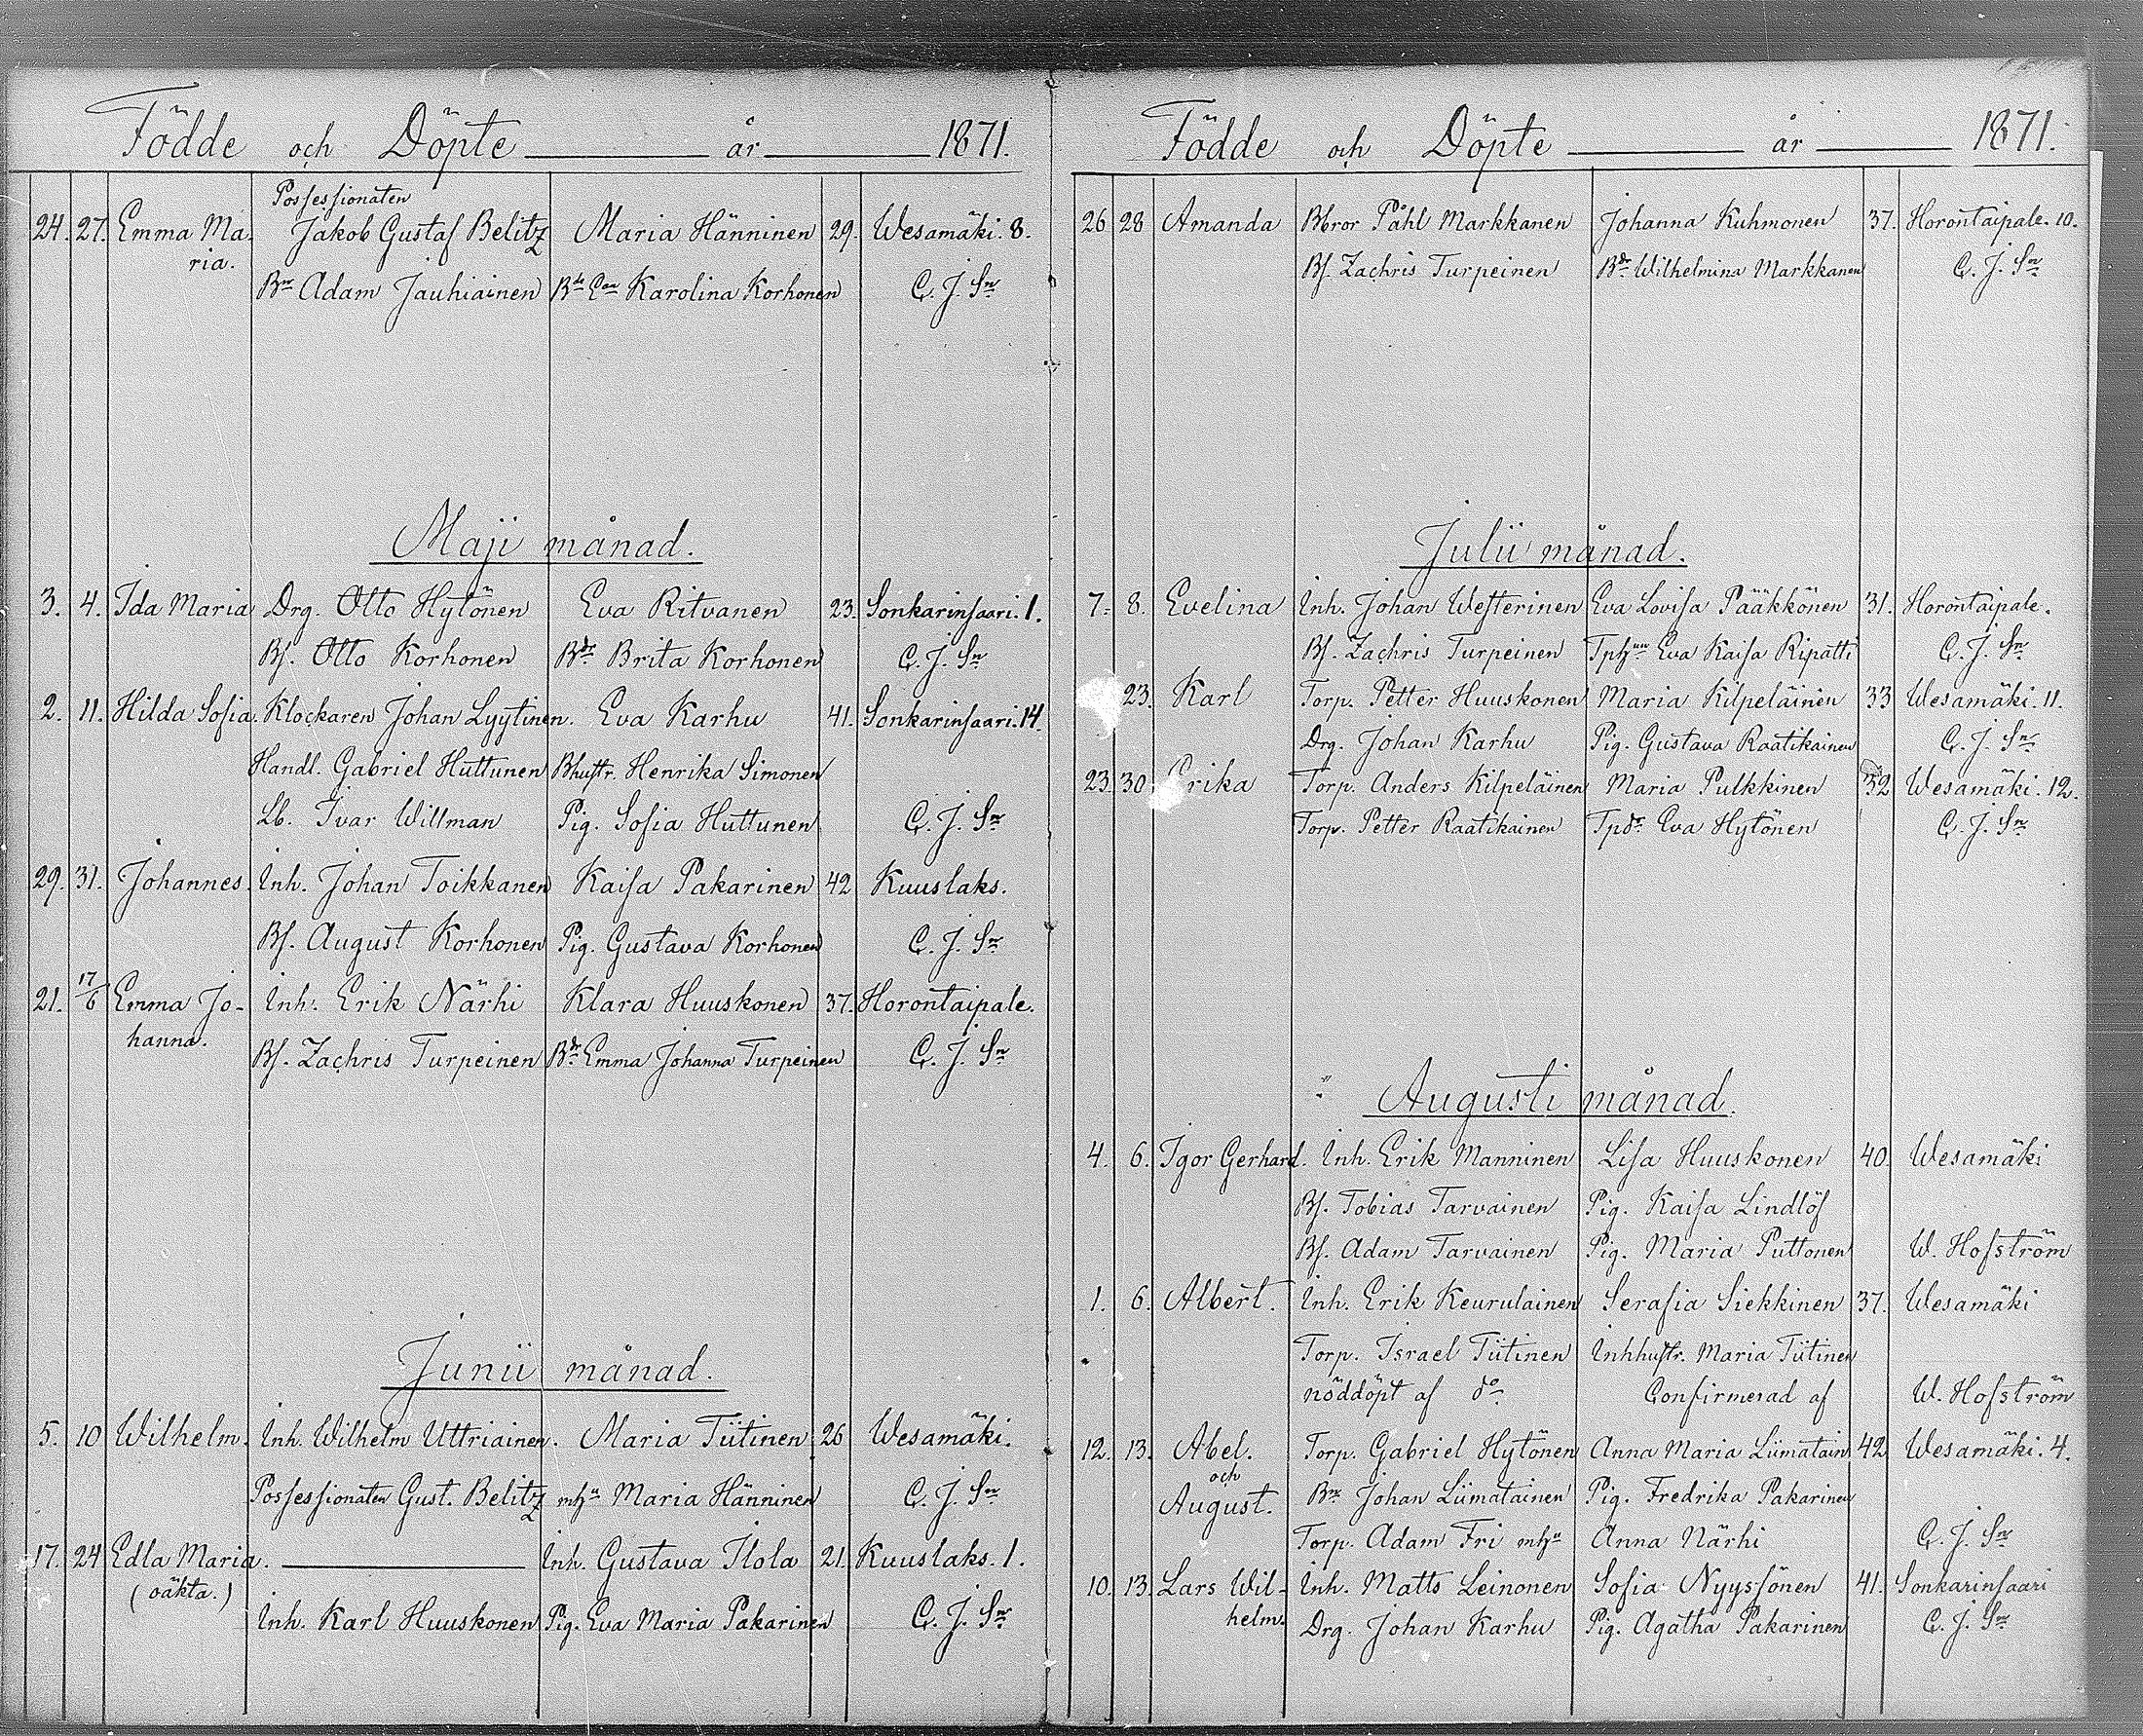 Födde och Döpte år 1871.
Possessionaten
24. 27. Emma Ma- Jakob Gustaf Belitz Maria Hänninen 29. Wesamäki. 8.
ria. Bn Adam Jauhiainen Karolina Korhonen C. J. Sn
Maji månad.
3. 4. Ida Maria Drg. Otto Hytönen Eva Ritvanen 23. Sonkarinsaari. 1.
Bs. Otto Korhonen Bdr Brita Korhonen C. J. Sn
2. 11. Hilda Sofia. Klockaren Johan Lyytinen. Eva Karhu 41. Sonkarinsaari. 14.
Handl. Gabriel Huttunen Bhustr. Henrika Simonen
Lb. Ivar Willman Pig. Sofia Huttunen C. J. Sn
29. 31. Johannes. Inh. Johan Toikkanen Kaisa Pakarinen 42 Kuuslaks.
Bs. August Korhonen Pig. Gustava Korhonen C. J. Sn
21. 17/6 Emma Jo- Inh. Erik Närhi Klara Huuskonen 37. Horontaipale.
hanna. Bs. Zachris Turpeinen Bdr Emma Johanna Turpeinen C. J. Sn
Junii månad.
5. 10 Wilhelm. Inh. Wilhelm Uttriainen. Maria Tiitinen 26 Wesamäki.
Possessionaten Gust. Belitz mhu Maria Hänninen C. J. Sn
17. 24 Edla Maria. Inh. Gustava Ilola 21. Kuuslaks. 1.
(oäkta.) Inh. Karl Huuskonen Pig. Eva Maria Pakarinen C. J. Sn
Födde och Döpte år 1871.
26 28 Amanda Bbror Påhl Markkanen Johanna Kuhmonen 37. Horontaipale. 10.
Bs. Zachris Turpeinen Bdr Wilhelmina Markkanen C. J. Sn
Julii månad.
7. 8. Evelina Inh. Johan Westerinen Eva Lovisa Pääkkönen 31. Horontaipale.
Bs. Zachris Turpeinen Eva Kaisa Ripatti C. J. Sn
23. Karl Torp. Petter Huuskonen Maria Kilpeläinen 33 Wesamäki. 11.
Drg. Johan Karhu Pig. Gustava Raatikainen C. J. Sn
23. 30 Erika Torp. Anders Kilpeläinen Maria Pulkkinen 32 Wesamäki. 12.
Torp. Petter Raatikainen Tpdr Eva Hytönen C. J. Sn
Augusti månad.
4. 6. Igor Gerhard. Inh. Erik Manninen Lisa Huuskonen 40. Wesamäki
Bs. Tobias Tarvainen Pig. Kaisa Lindlöf
Bs. Adam Tarvainen Pig. Maria Puttonen W. Hofström
1. 6. Albert. Inh. Erik Keurulainen Serafia Siekkinen 37. Wesamäki
Torp. Israel Tiitinen Inhhustr. Maria Tiitinen
nöddöpt af do Confirmerad af W. Hofström
12. 13. Abel. Torp. Gabriel Hytönen Anna Maria Liimatain 42 Wesamäki. 4.
och
August. Bn Johan Liimatainen Pig. Fredrika Pakarinen
Torp. Adam Fri mhu Anna Närhi C. J. Sn
10. 13. Lars Wil- Inh. Matts Leinonen Sofia Nyyssönen 41. Sonkarinsaari
helm. Drg. Johan Karhu Pig. Agatha Pakarinen C. J. Sn